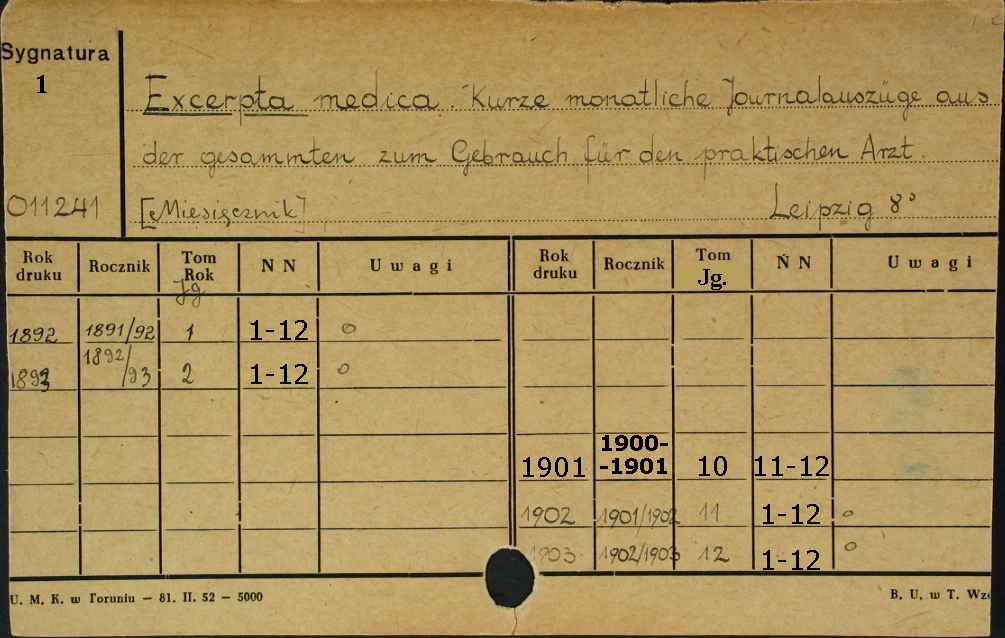 Sygnatura
1
011241
Excerpta medica. Kurze monatliche Journalauszüge aus
der gesammten zum Gebrauch für den praktischen Arzt.
[Miesięcznik] Leipzig 8°
Rok druku Rocznik Tom Rok Jg. N N Uwagi Rok druku Rocznik Tom Jg. N N Uwagi
1892 1891/92 1 1-12 o
1893 1892/93 2 1-12 o
1901 1900--1901 10 11-12
1902 1901/1902 11 1-12 o
1903 1902/1903 12 1-12 o
U. M. K. w Toruniu — 81. II. 52 — 5000 B. U. w T. Wzó